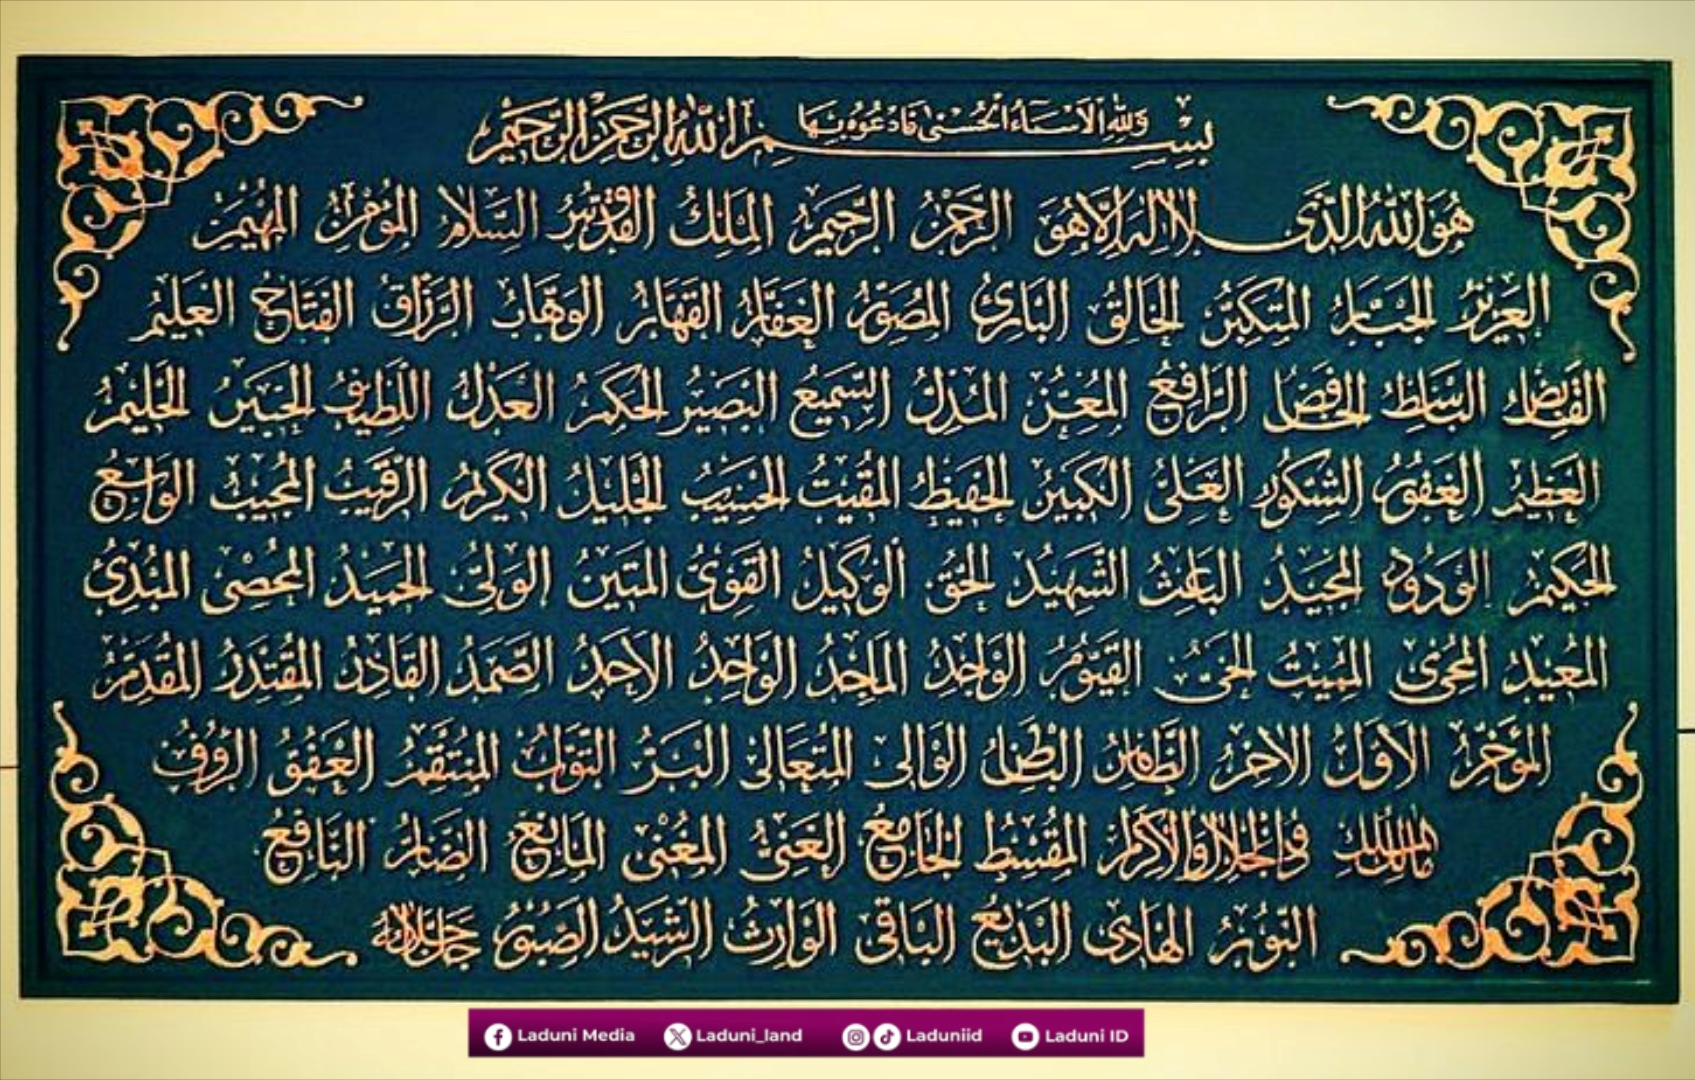 وَلِلَّهِ الْأَسْمَاءُ الْحُسْنَىٰ فَادْعُوهُ بِهَا
بِسْمِ اللَّهِ الرَّحْمَٰنِ الرَّحِيمِ
هُوَ اللَّهُ الَّذِي لَا إِلَٰهَ إِلَّا هُوَ الرَّحْمَنُ الرَّحِيمُ الْمَلِكُ الْقُدُّوسُ السَّلَامُ الْمُؤْمِنُ الْمُهَيْمِنُ
الْعَزِيزُ الْجَبَّارُ الْمُتَكَبِّرُ الْخَالِقُ الْبَارِئُ الْمُصَوِّرُ الْغَفَّارُ الْقَهَّارُ الْوَهَّابُ الرَّزَّاقُ الْفَتَّاحُ الْعَلِيمُ
الْقَابِضُ الْبَاسِطُ الْخَافِضُ الرَّافِعُ الْمُعِزُّ الْمُذِلُّ السَّمِيعُ الْبَصِيرُ الْحَكَمُ الْعَدْلُ اللَّطِيفُ الْخَبِيرُ الْحَلِيمُ
الْعَظِيمُ الْغَفُورُ الشَّكُورُ الْعَلِيُّ الْكَبِيرُ الْحَفِيظُ الْمُقِيتُ الْحَسِيبُ الْجَلِيلُ الْكَرِيمُ الرَّقِيبُ الْمُجِيبُ الْوَاسِعُ
الْحَكِيمُ الْوَدُودُ الْمَجِيدُ الْبَاعِثُ الشَّهِيدُ الْحَقُّ الْوَكِيلُ الْقَوِيُّ الْمَتِينُ الْوَلِيُّ الْحَمِيدُ الْمُحْصِي الْمُبْدِئُ
الْمُعِيدُ الْمُحْيِي الْمُمِيتُ الْحَيُّ الْقَيُّومُ الْوَاجِدُ الْمَاجِدُ الْوَاحِدُ الْأَحَدُ الصَّمَدُ الْقَادِرُ الْمُقْتَدِرُ الْمُقَدِّمُ
الْمُؤَخِّرُ الْأَوَّلُ الْآخِرُ الظَّاهِرُ الْبَاطِنُ الْوَالِي الْمُتَعَالِي الْبَرُّ التَّوَّابُ الْمُنْتَقِمُ الْعَفُوُّ الرَّؤُوفُ
مَالِكُ الْمُلْكِ ذُو الْجَلَالِ وَالْإِكْرَامِ الْمُقْسِطُ الْجَامِعُ الْغَنِيُّ الْمُغْنِي الْمَانِعُ الضَّارُّ النَّافِعُ
النُّورُ الْهَادِي الْبَدِيعُ الْبَاقِي الْوَارِثُ الرَّشِيدُ الصَّبُورُ جَلَّ جَلَالُهُ
Laduni Media Laduni_land Laduniid Laduni ID